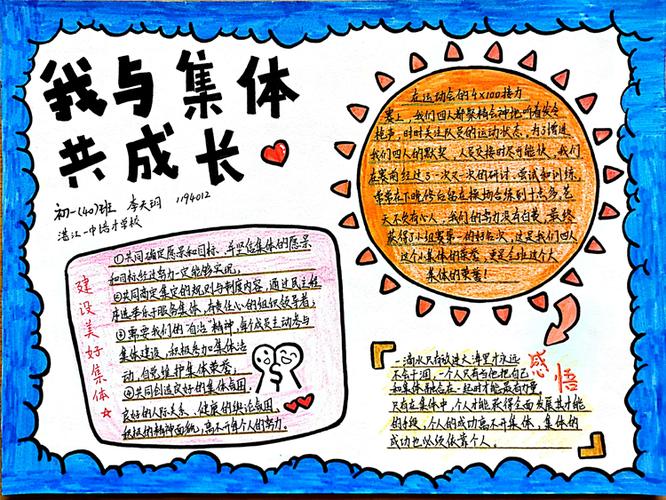 我与集体
共成长
初一(40)班 李天玥 1194012
湛江一中培才学校
建设美好集体
①共同确定愿景和目标,并坚信集体的愿景
和目标经过努力一定能够实现。
②共同商定集定的规则与制度内容,通过民主程
序选举乐于服务集体,有责任心的组织领导者;
③需要我们的"自治"精神,每个成员主动参与
集体建设,积极参加集体活
动,自觉维护集体荣誉。
④共同创造良好的集体氛围,
良好的人际关系、健康的舆论氛围、
积极的精神面貌,离不开每个人的努力。
在运动会的4×100接力
赛上,我们四人都聚精会神地听着发令
枪声,时时关注队员的运动状态,为了增进
我们四人的默契,人员交接时尽可能快,我们
在赛前经过了一次又一次的研讨,尝试和训练,
常常在下晚修后留在操场合练到十点多,苍
天不负有心人,我们的努力没有白费,最终
获得了小组赛第一的好名次,这是我们四人
这个小集体的荣誉,更是全班这个大
集体的荣誉!
感悟
一滴水只有放进大海里才永远
不会干涸,一个人只有当他把自己
和集体融合在一起时才能最有力量
只有在集体中,个人才能获得全面发展其才能
的手段,个人的成功离不开集体,集体的
成功也必须依靠个人。